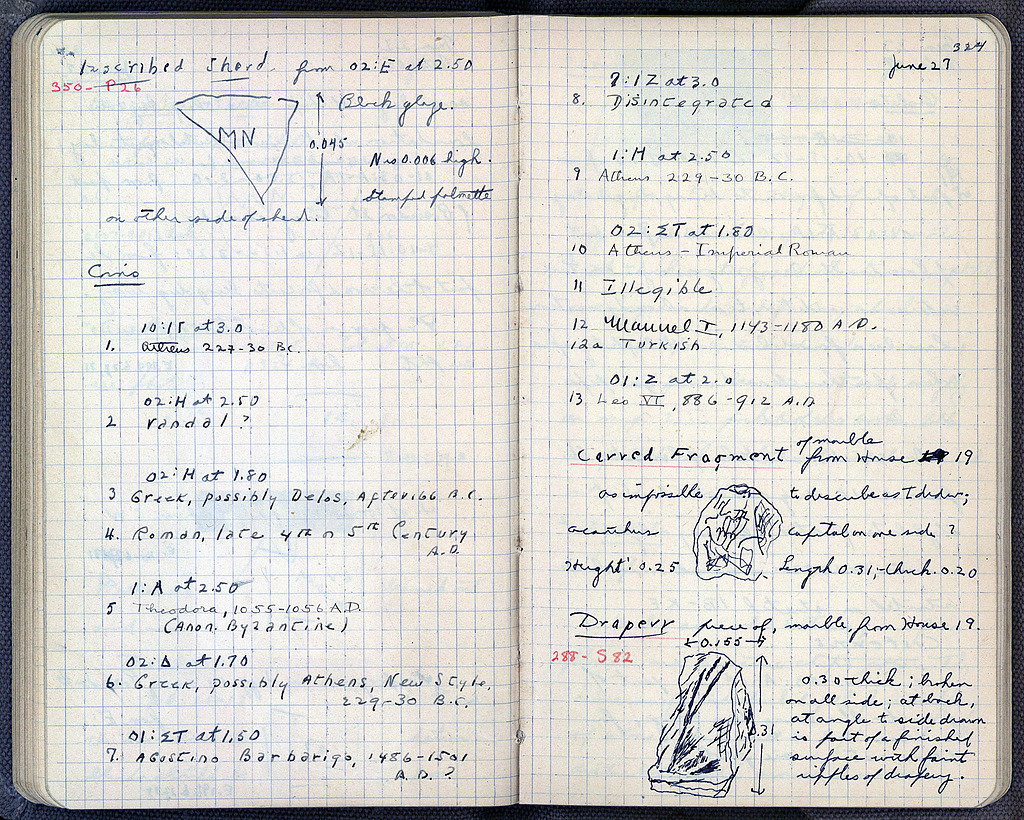 Inscribed Sherd. from 02:E at 2.50
350-P26
Black glaze.
MN
0.045
N is 0.006 high.
Stamped palmette
on other side of sherd.
Coins
10:ΙΓ at 3.0
1. Athens 229-30 B.C.
02:H at 2.50
2 Vandal?
02:H at 1.80
3 Greek, possibly Delos, After 166 B.C.
4. Roman, late 4th or 5th Century
A.D.
1:A at 2.50
5 Theodora, 1055-1056 A.D.
(Anon. Byzantine)
02:Δ at 1.70
6. Greek, possibly Athens, New Style,
229-30 B.C.
01:ΣΤ at 1.50
7. Agostino Barbarigo, 1486-1501
A.D.?
324
June 27
9:ΙΖ at 3.0
8. Disintegrated
1:H at 2.50
9 Athens 229-30 B.C.
02:ΣΤ at 1.80
10 Athens - Imperial Roman
11 Illegible
12 Manuel I, 1143-1180 A.D.
12a Turkish
01:Z at 2.0
13 Leo VI, 886-912 A.D
Carved Fragment of marble from House 19
as impossible to describe as to draw;
acanthus capital on one side?
Height: 0.25 Length 0.31,-thick. 0.20
Drapery piece of, marble, from House 19.
0.155
288-S82
0.30 thick; broken
on all side; at back,
at angle to side drawn
is part of a finished
surface with faint
ripples of drapery.
0.31